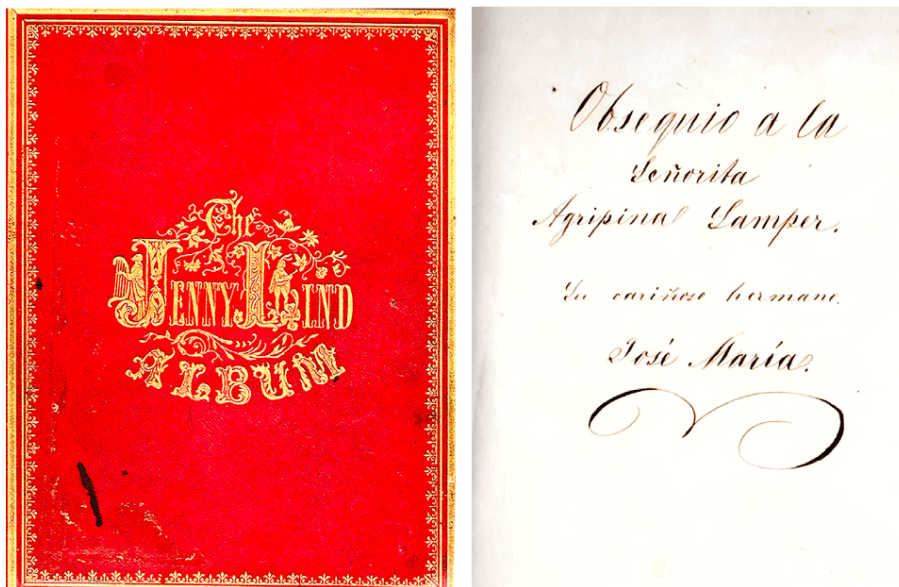 The
JENNY LIND
ALBUM
Obsequio a la
Señorita
Agripina Samper.
Su cariñoso hermano.
José María.